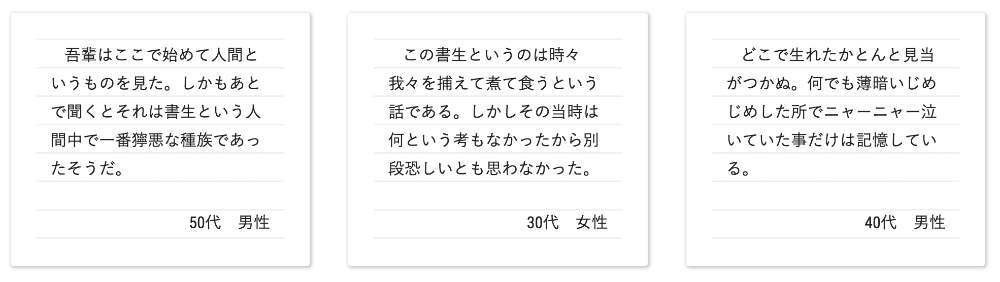 吾輩はここで始めて人間と
いうものを見た。しかもあと
で聞くとそれは書生という人
間中で一番獰悪な種族であっ
たそうだ。
50代　男性
この書生というのは時々
我々を捕えて煮て食うという
話である。しかしその当時は
何という考もなかったから別
段恐しいとも思わなかった。
30代　女性
どこで生れたかとんと見当
がつかぬ。何でも薄暗いじめ
じめした所でニャーニャー泣
いていた事だけは記憶してい
る。
40代　男性